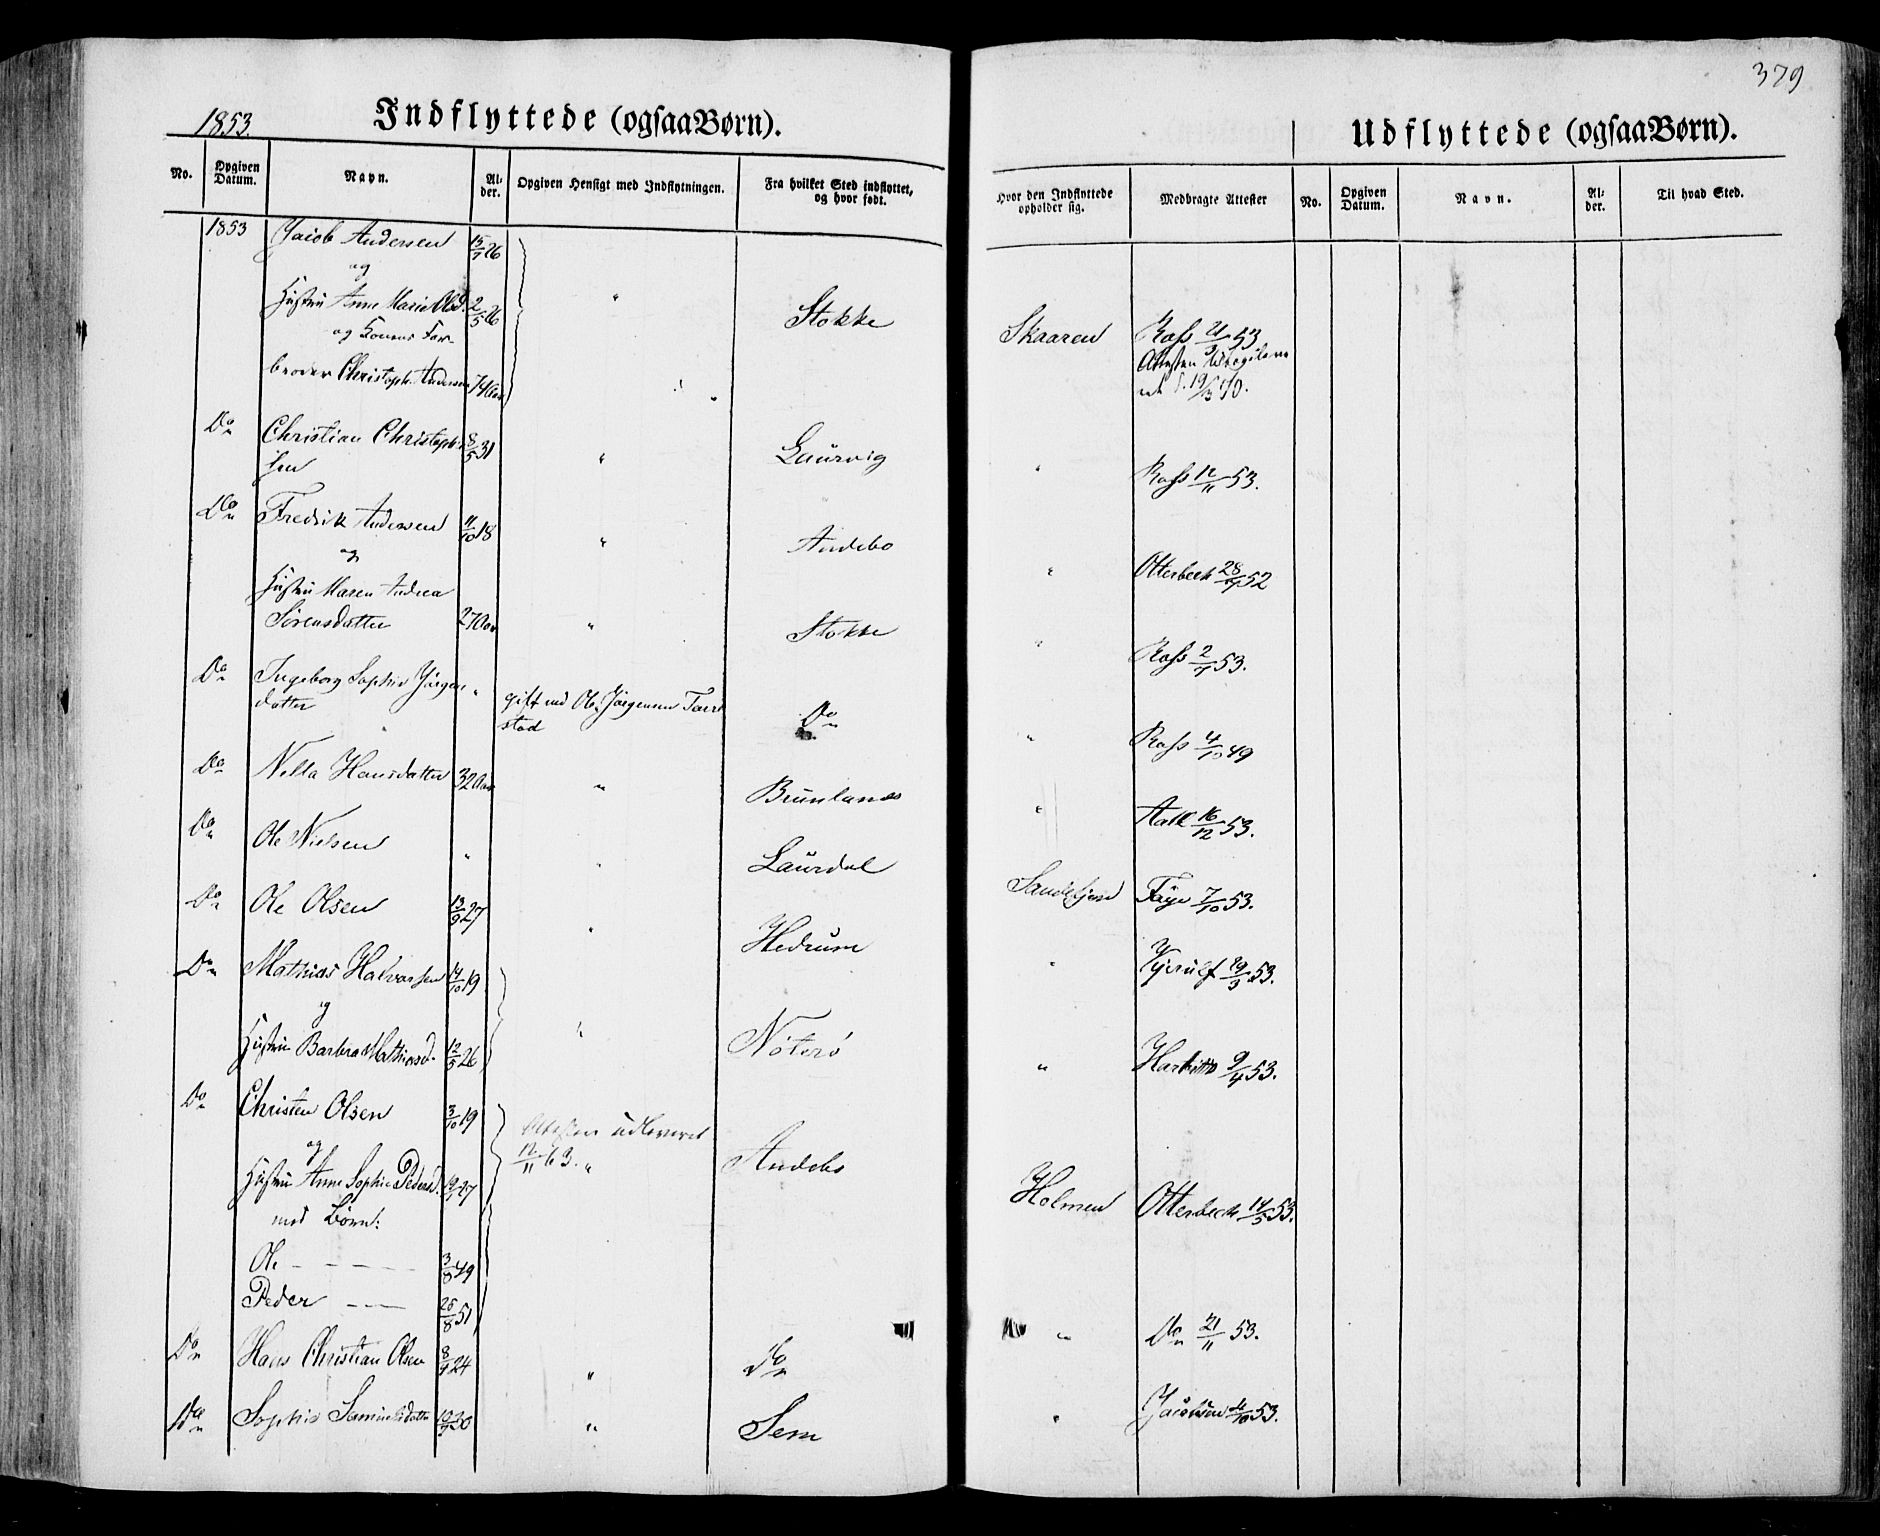 379
1853.
Indflyttede (ogsaa Børn).
Udflyttede (ogsaa Børn).
No. Opgiven Datum. Navn. Al- der. Opgiven Hensigt med Indflytningen. Fra hvilket Sted indflyttet, og hvor født. Hvor den Indflyttede opholder sig. Medbragte Attester No. Opgiven Datum. Navn. Al- der. Til hvad Sted.
1853 Jacob Andersen 15/7 26
og
Hustru Anne Marie Olsd. 2/5 26 " Stokke Skaaren Rass 21/3 53
og Konens Far-
broder Christoph. Andersen 74 Aar
Do Christian Christoph- 8/5 31 " Laurvig " Rass 12/11 53.
sen
Do Fredrik Andersen 11/10 18 " Andebo " Otterbech 28/4 52
og
Hustru Maren Andrea
Sørensdatter 27 Aar " Stokke " Rass 2/4 53.
Do Ingeborg Sophie Jørgen- " gift med Ole Jørgensen
datter stad Do " Rass 4/10 49
Do Nella Hansdatter 32 Aar " Brunlanes " Aall 16/12 53.
Do Ole Nielsen " " Laurdal Sandefjord Faye 7/10 53.
Do Ole Olsen 13/9 27 " Hedrum " Kjerulf 29/3 53.
Do Mathias Halvorsen 14/10 19
og " Nøterø " 9/4 53.
Hustru Barbra Mathiasd. 12/5 26
Do Christen Olsen 3/10 19 Attesten udleveret
og 12/11 63. " Andebo Holmen Otterbech 14/5 53.
Hustru Anne Sophie Pedersd. 27
med Børn:
Ole - - - - - 3/8 49
Peder - - - 25/8 51
Do Hans Christian Olsen 8/9 24 " Do " Do 21/11 53.
Do Sophie Samuelsdatter 30 " Sem " Jacobsen 53.